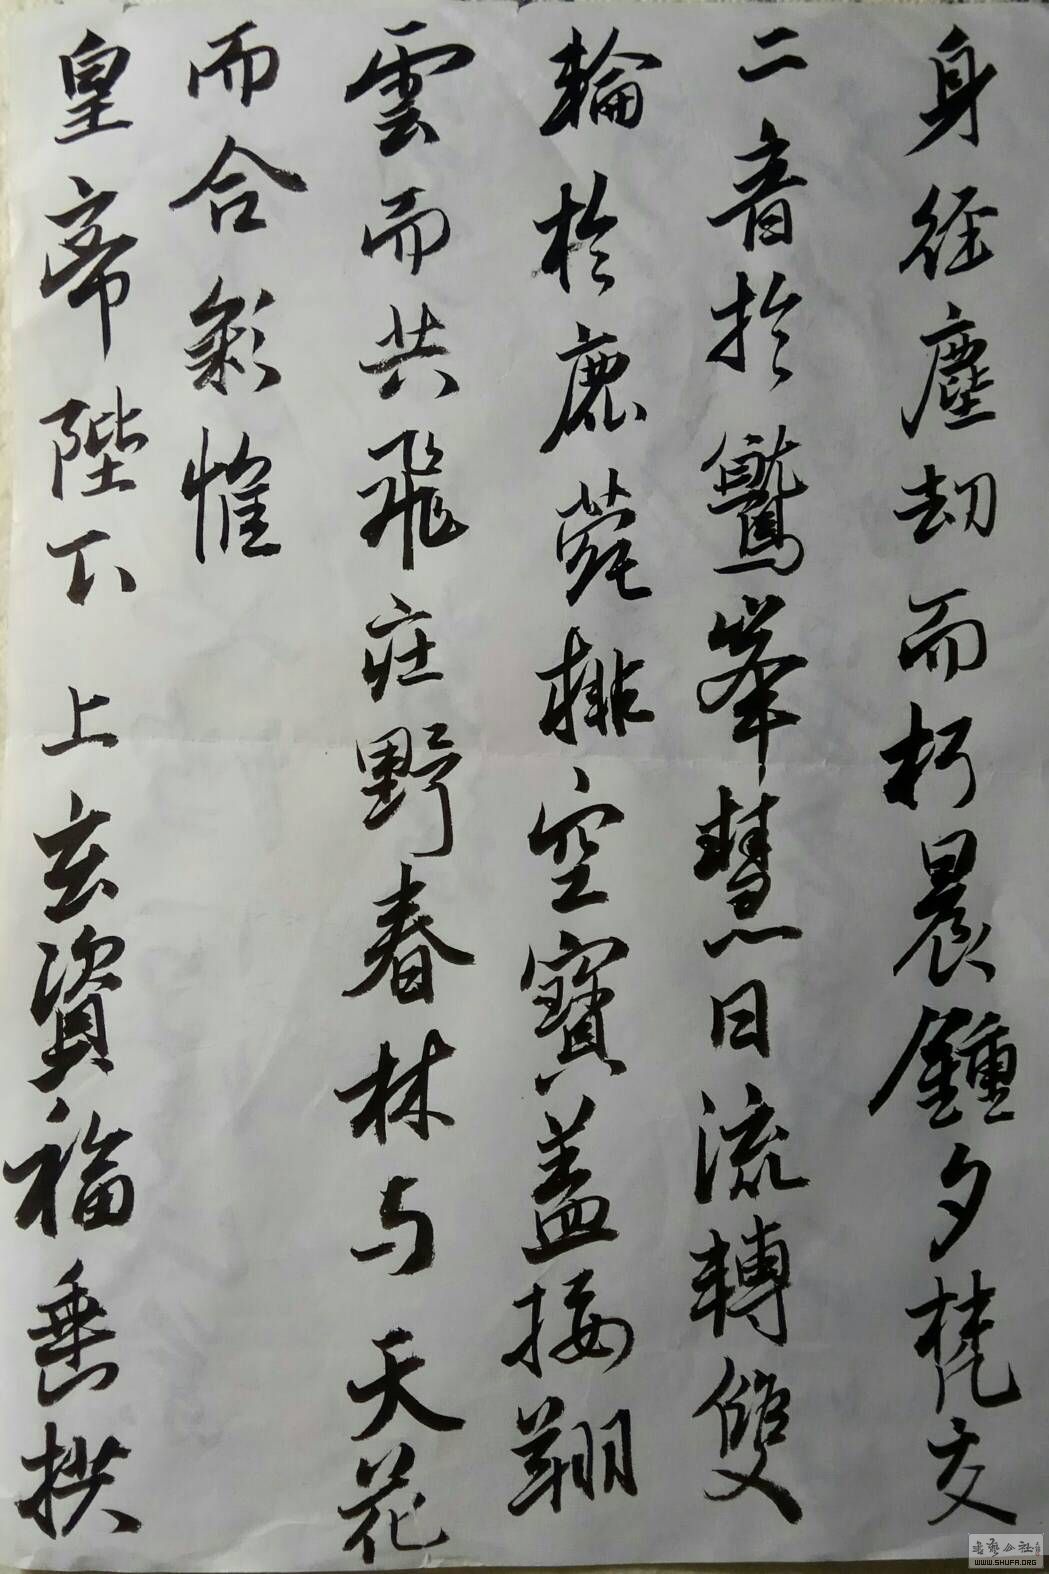 身径塵劫而朽晨鍾夕梵交
二音扵鷲峯慧日流轉雙
輪扵鹿菀排空寶盖接翔
雲而共飛庄野春林与天花
而合彩惟
皇帝陛下上玄資福垂拱
WWW.SHUFA.ORG